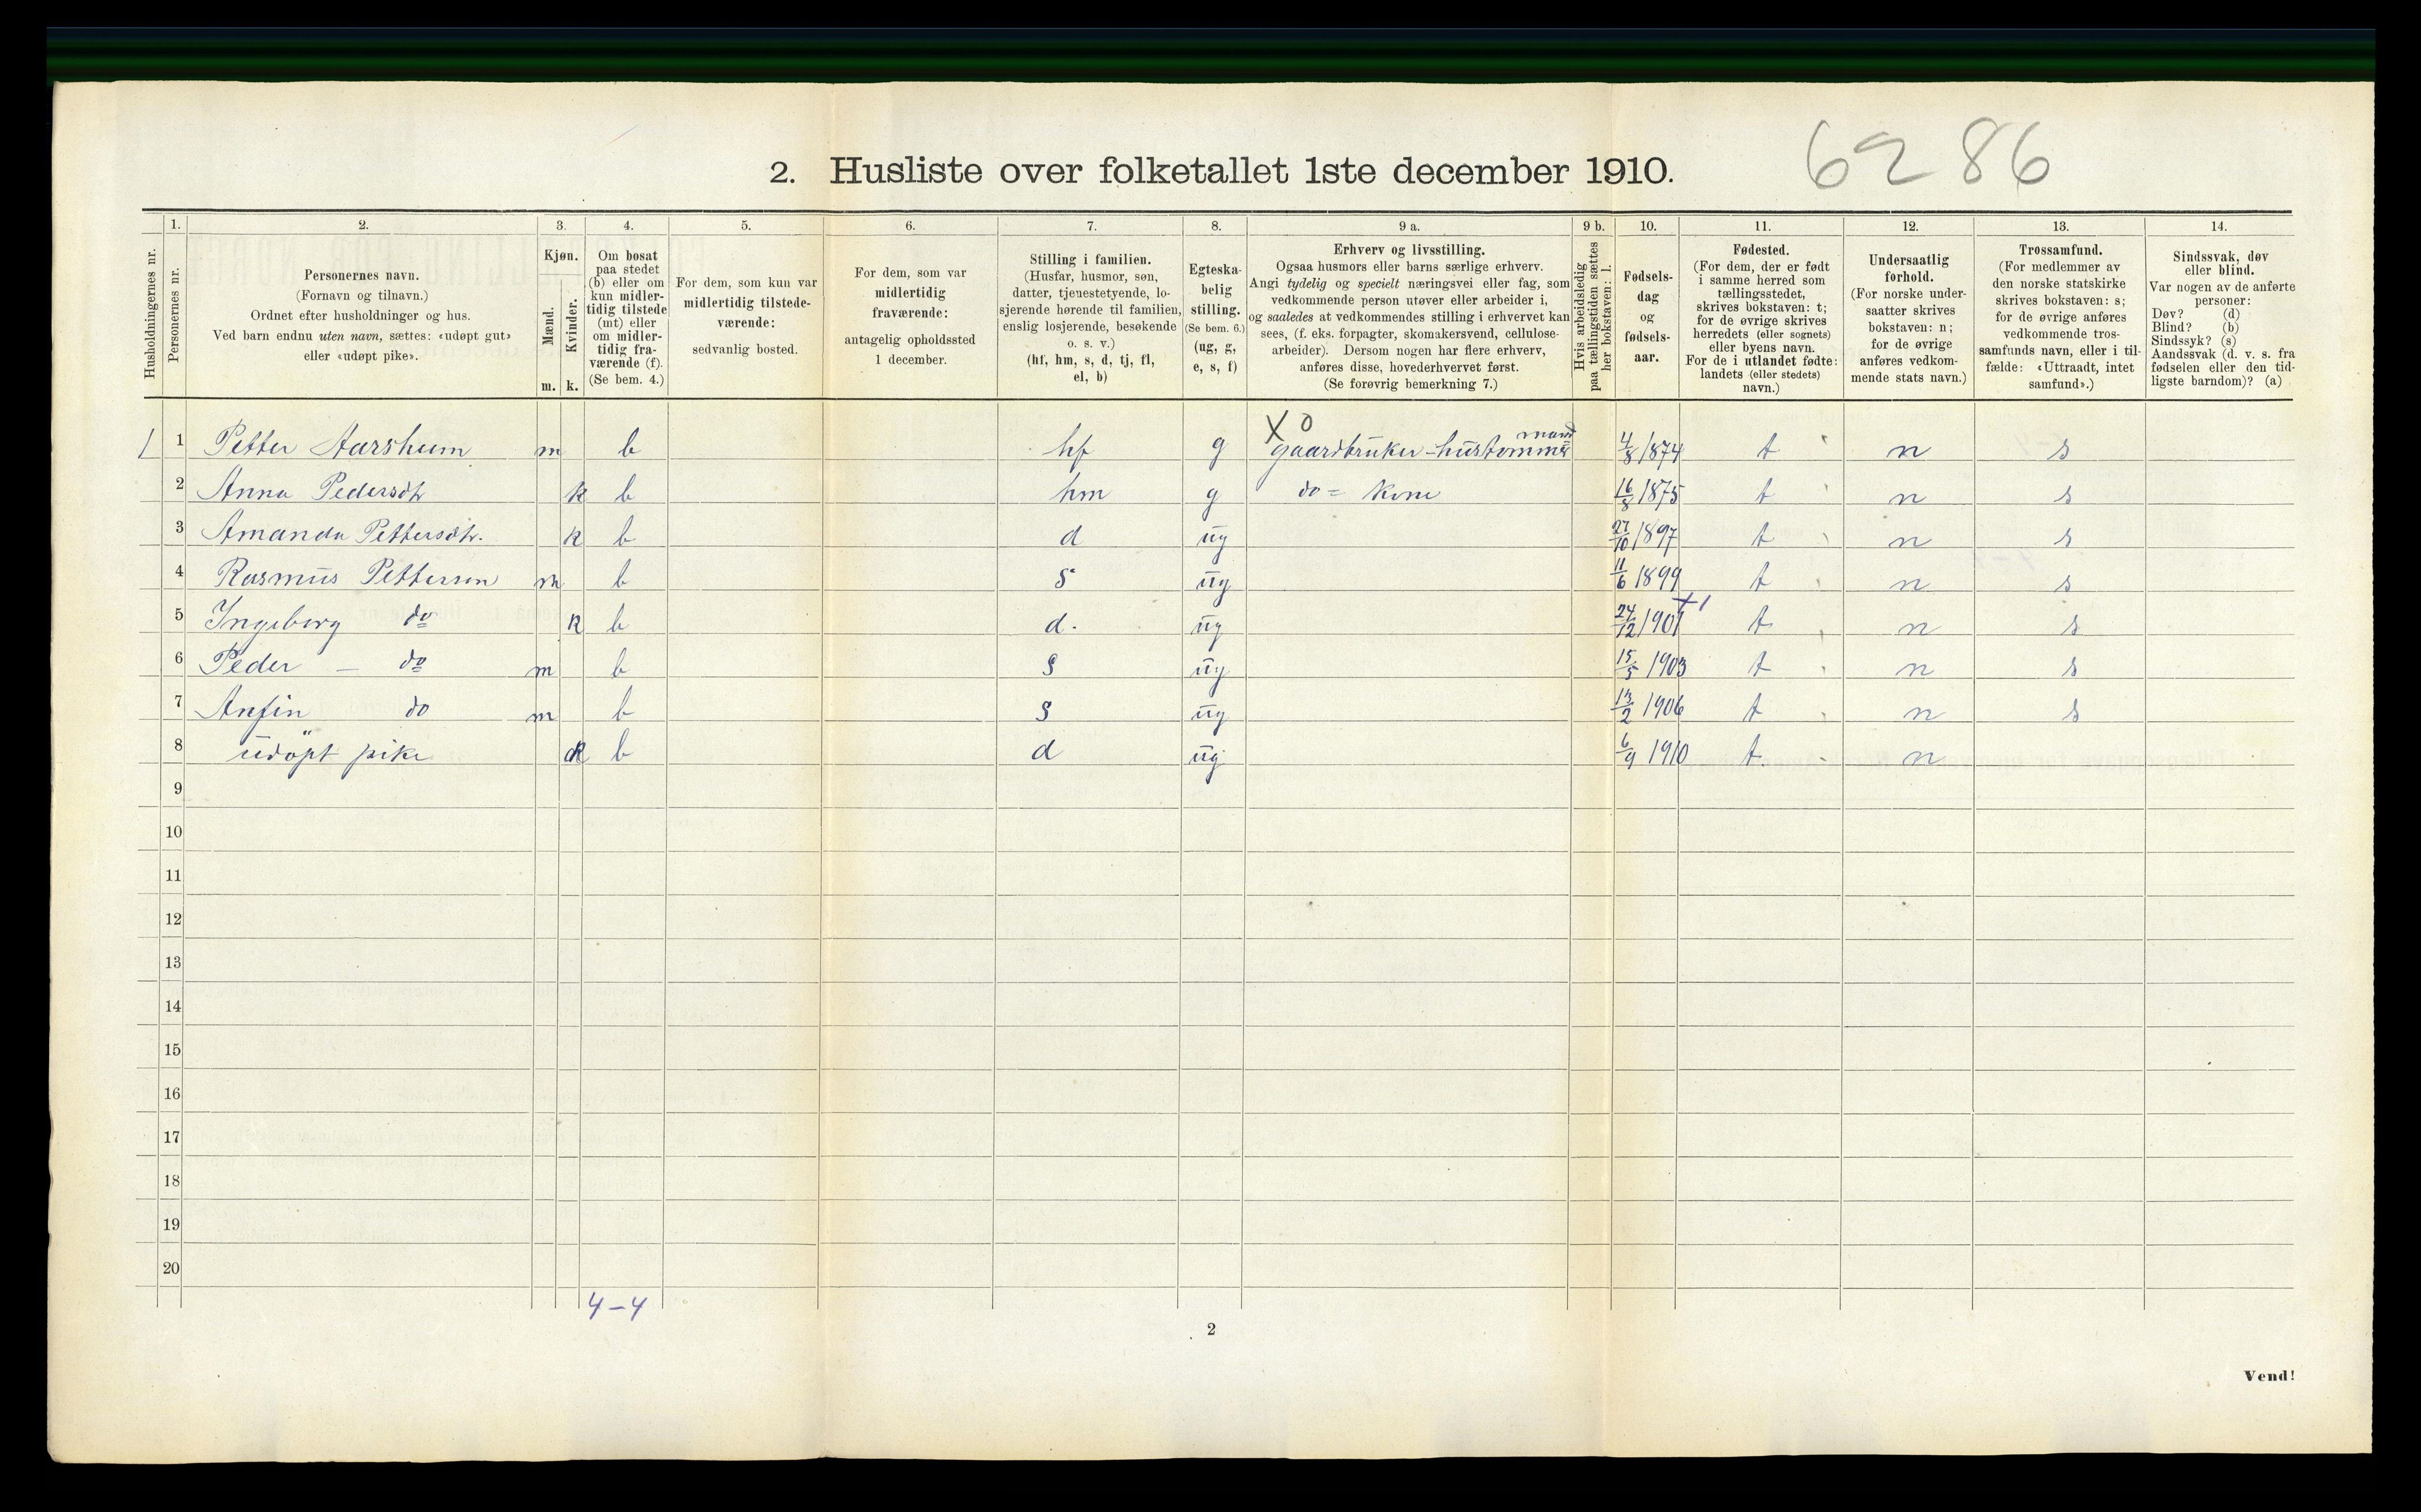 6286
2. Husliste over folketallet 1ste december 1910.
Husholdningernes nr.
1.
Personernes nr.
2.
Personernes navn.
(Fornavn og tilnavn.)
Ordnet efter husholdninger og hus.
Ved barn endnu uten navn, sættes: «udøpt gut»
eller «udøpt pike».
3.
Kjøn.
Mænd.
Kvinder.
m. k.
4.
Om bosat
paa stedet
(b) eller om
kun midler-
tidig tilstede
(mt) eller
om midler-
tidig fra-
værende (f).
(Se bem. 4.)
5.
For dem, som kun var
midlertidig tilstede-
værende:
sedvanlig bosted.
6.
For dem, som var
midlertidig
fraværende:
antagelig opholdssted
1 december.
7.
Stilling i familien.
(Husfar, husmor, søn,
datter, tjenestetyende, lo-
sjerende hørende til familien,
enslig losjerende, besøkende
o. s. v.)
(hf, hm, s, d, tj, fl,
el, b)
8.
Egteska-
belig
stilling.
(Se bem. 6.)
(ug, g,
e, s, f)
9 a.
Erhverv og livsstilling.
Ogsaa husmors eller barns særlige erhverv.
Angi tydelig og specielt næringsvei eller fag, som
vedkommende person utøver eller arbeider i,
og saaledes at vedkommendes stilling i erhvervet kan
sees, (f. eks. forpagter, skomakersvend, cellulose-
arbeider). Dersom nogen har flere erhverv,
anføres disse, hovederhvervet først.
(Se forøvrig bemerkning 7.)
9 b.
Hvis arbeidsledig
paa tællingstiden sættes
her bokstaven: l.
10.
Fødsels-
dag
og
fødsels-
aar.
11.
Fødested.
(For dem, der er født
i samme herred som
tællingsstedet,
skrives bokstaven: t;
for de øvrige skrives
herredets (eller sognets)
eller byens navn.
For de i utlandet fødte:
landets (eller stedets)
navn.)
12.
Undersaatlig
forhold.
(For norske under-
saatter skrives
bokstaven: n;
for de øvrige
anføres vedkom-
mende stats navn.)
13.
Trossamfund.
(For medlemmer av
den norske statskirke
skrives bokstaven: s;
for de øvrige anføres
vedkommende tros-
samfunds navn, eller i til-
fælde: «Uttraadt, intet
samfund».)
14.
Sindssvak, døv
eller blind.
Var nogen av de anførte
personer:
Døv? (d)
Blind? (b)
Sindssyk? (s)
Aandssvak (d. v. s. fra
fødselen eller den tid-
ligste barndom)? (a)
X 0
mand
1 1 Petter Aarsheim m b hf g gaardbruker - hustømmer 4/8 1874 t n s
2 Anna Pedersdtr k b hm g do = Kone 16/8 1875 t n s
3 Amanda Pettersdtr. k b d ug 27/10 1897 t n s
4 Rasmus Petterson m b s ug 11/6 1899 t n s
+1
5 Ingeborg do k b d. ug 24/12 1901 t n s
6 Peder - do m b s ug 15/5 1903 t n s
7 Anfin do m b s ug 13/2 1906 t n s
8 udøpt pike k b d ug 6/9 1910 t. n
9
10
11
12
13
14
15
16
17
18
19
20
4-4
2
Vend!